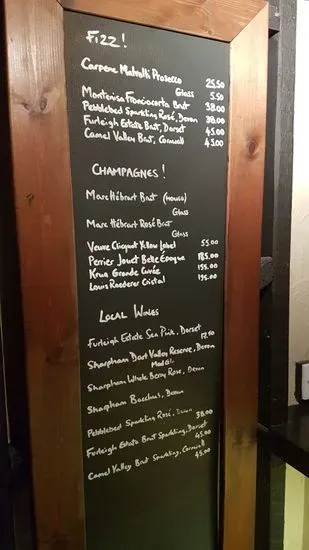 Fizz!
Carpene Malvolti Prosecco 25.50
Glass 5.50
Monterisa Franciacorta Brut 38.00
Pebblebed Sparkling Rosé, Devon 38.00
Furleigh Estate Brut, Dorset 45.00
Camel Valley Brut, Cornwall 45.00
CHAMPAGNES!
Marc Hébrart Brut (House)
Glass
Marc Hébrart Rosé Brut
Glass
Veuve Clicquot Yellow Label 55.00
Perrier Jouet Belle Epoque 185.00
Krug Grande Cuvée 195.00
Louis Roederer Cristal 195.00
LOCAL WINES
Furleigh Estate Sea Pink, Dorset
17.50
Sharpham Dart Valley Reserve, Devon
Sharpham Whole Berry Rose, Devon
Sharpham Bacchus, Devon
Pebblebed Sparkling Rosé, Devon 38.00
Furleigh Estate Brut Sparkling, Dorset
45.00
Camel Valley Brut Sparkling, Cornwall
45.00